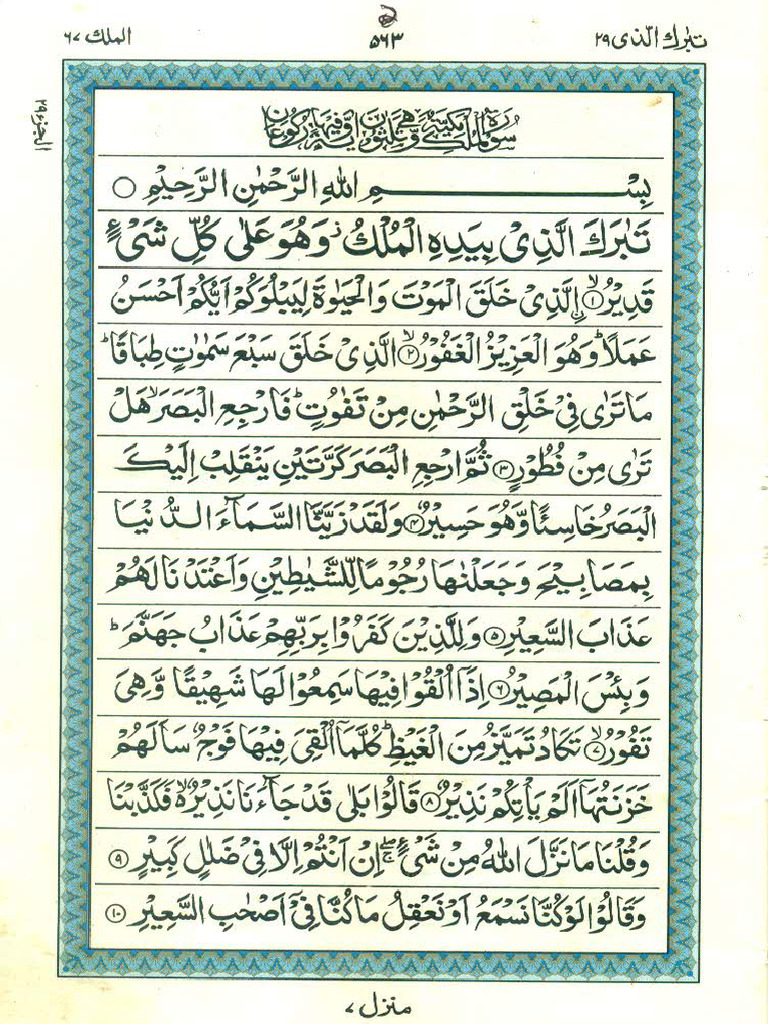 تبٰرك الّذی ٢٩
٥٦٣
الملك ٦٧
الجزء ٢٩
سُوْرَةُ الْمُلْكِ مَكِّيَّةٌ وَّهِيَ ثَلٰثُوْنَ اٰيَةً وَّفِيْهَا رُكُوْعَانِ
بِسْمِ اللهِ الرَّحْمٰنِ الرَّحِيْمِ ○
تَبٰرَكَ الَّذِیْ بِيَدِهِ الْمُلْكُ ز وَهُوَ عَلٰی كُلِّ شَیْءٍ
قَدِيْرُ ۙ﴿١﴾ اِۨلَّذِیْ خَلَقَ الْمَوْتَ وَالْحَيٰوةَ لِيَبْلُوَكُمْ اَيُّكُمْ اَحْسَنُ
عَمَلًا ؕ وَهُوَ الْعَزِيْزُ الْغَفُوْرُ ۙ﴿٢﴾ الَّذِیْ خَلَقَ سَبْعَ سَمٰوٰتٍ طِبَاقًا ؕ
مَا تَرٰی فِیْ خَلْقِ الرَّحْمٰنِ مِنْ تَفٰوُتٍ ؕ فَارْجِعِ الْبَصَرَ ۙ هَلْ
تَرٰی مِنْ فُطُوْرٍ ﴿٣﴾ ثُمَّ ارْجِعِ الْبَصَرَ كَرَّتَيْنِ يَنْقَلِبْ اِلَيْكَ
الْبَصَرُ خَاسِئًا وَّهُوَ حَسِيْرٌ ﴿٤﴾ وَلَقَدْ زَيَّنَّا السَّمَآءَ الدُّنْيَا
بِمَصَابِيْحَ وَجَعَلْنٰهَا رُجُوْمًا لِّلشَّيٰطِيْنِ وَاَعْتَدْنَا لَهُمْ
عَذَابَ السَّعِيْرِ ﴿٥﴾ وَلِلَّذِيْنَ كَفَرُوْا بِرَبِّهِمْ عَذَابُ جَهَنَّمَ ؕ
وَبِئْسَ الْمَصِيْرُ ﴿٦﴾ اِذَآ اُلْقُوْا فِيْهَا سَمِعُوْا لَهَا شَهِيْقًا وَّهِیَ
تَفُوْرُ ۙ﴿٧﴾ تَكَادُ تَمَيَّزُ مِنَ الْغَيْظِ ؕ كُلَّمَآ اُلْقِیَ فِيْهَا فَوْجٌ سَاَلَهُمْ
خَزَنَتُهَآ اَلَمْ يَاْتِكُمْ نَذِيْرٌ ﴿٨﴾ قَالُوْا بَلٰی قَدْ جَآءَنَا نَذِيْرٌ ۙ۬ فَكَذَّبْنَا
وَقُلْنَا مَا نَزَّلَ اللهُ مِنْ شَیْءٍ ۖۚ اِنْ اَنْتُمْ اِلَّا فِیْ ضَلٰلٍ كَبِيْرٍ ﴿٩﴾
وَقَالُوْا لَوْ كُنَّا نَسْمَعُ اَوْ نَعْقِلُ مَا كُنَّا فِیْٓ اَصْحٰبِ السَّعِيْرِ ﴿١٠﴾
منزل ٧